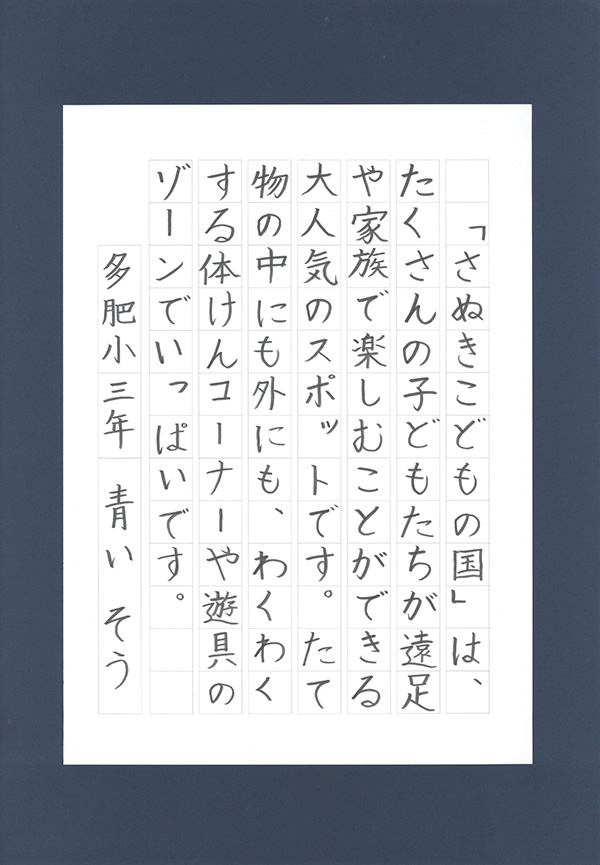 「さぬきこどもの国」は、
たくさんの子どもたちが遠足
や家族で楽しむことができる
大人気のスポットです。たて
物の中にも外にも、わくわく
する体けんコーナーや遊具の
ゾーンでいっぱいです。
多肥小三年 青い そう